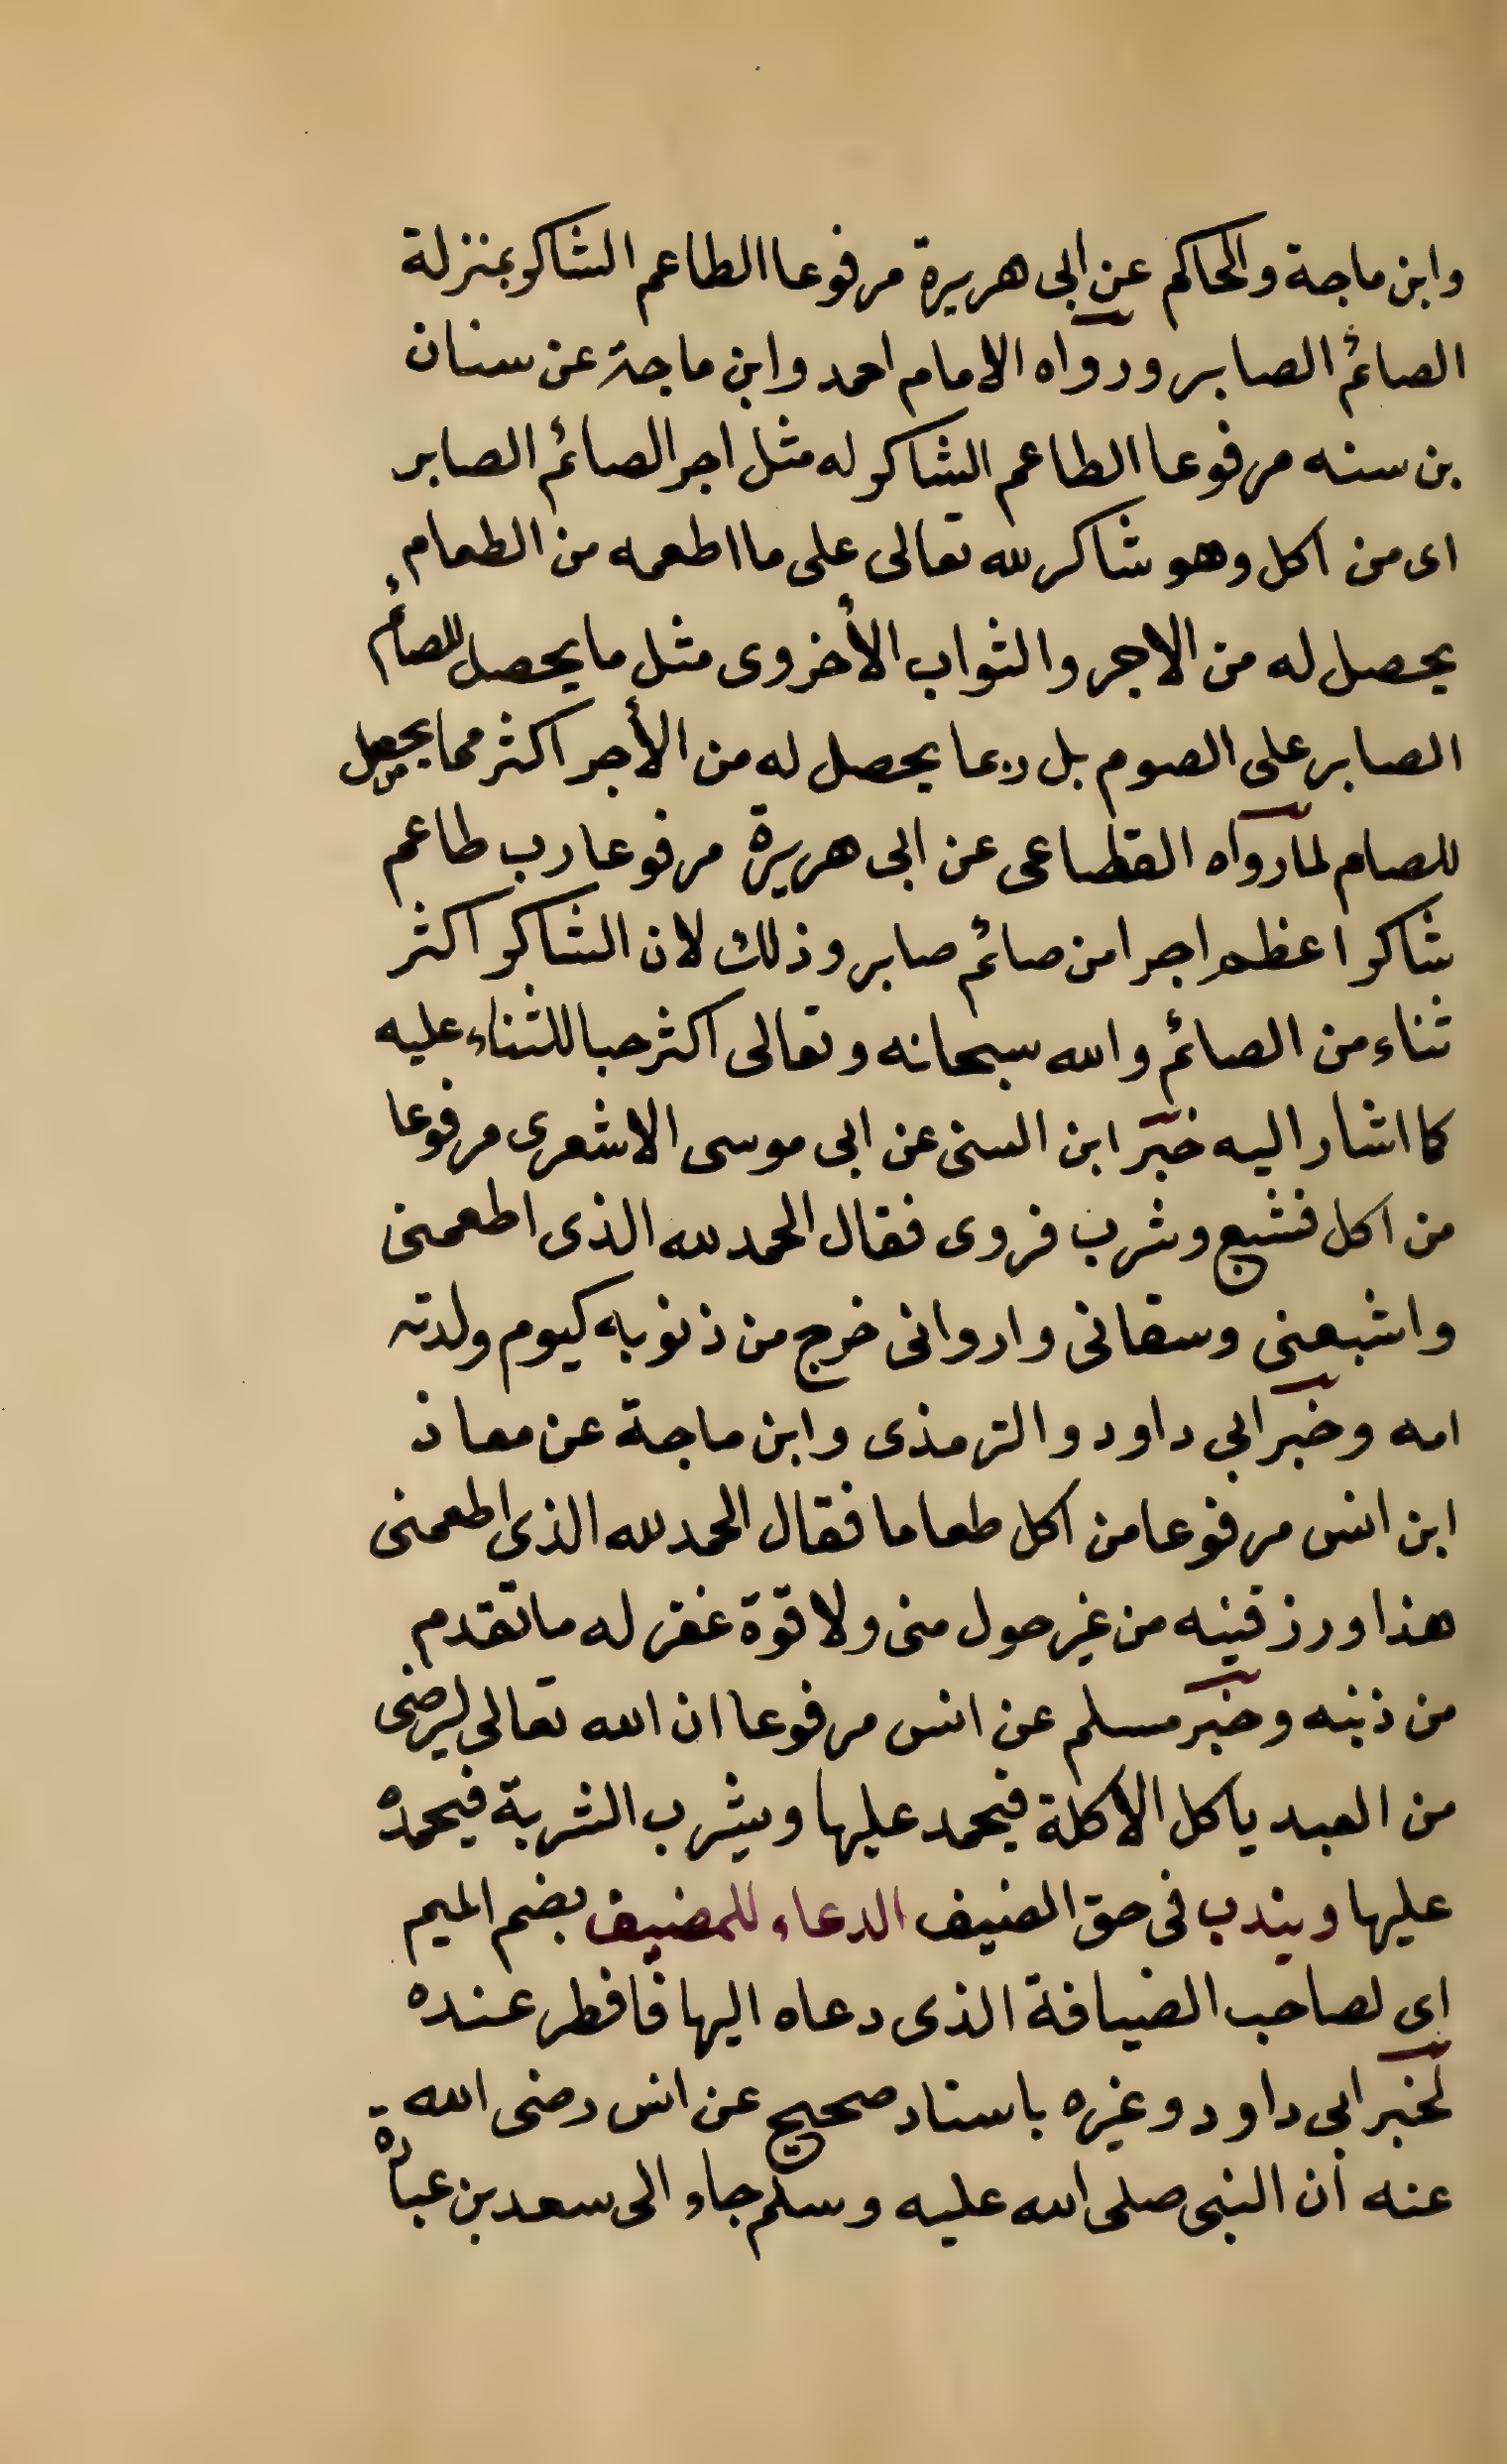 وابن ماجة والحاكم عن ابى هريرة مرفوعا الطاعم الشاكر بمنزلة
الصائم الصابر ورواه الامام احمد وابن ماجة عن سنان
بن سنه مرفوعا الطاعم الشاكر له مثل اجر الصائم الصابر
اى من اكل وهو شاكر لله تعالى على ما اطعمه من الطعام
يحصل له من الاجر والثواب الأخروى مثل ما يحصل للصائم
الصابر على الصوم بل ربما يحصل له من الأجر اكثر مما يحصل
للصام لما رواه القطاعى عن ابى هريرة مرفوعا رب طاعم
شاكر اعظم اجرا من صائم صابر وذلك لان الشاكر اكثر
ثناء من الصائم والله سبحانه وتعالى اكثر حبا للثناء عليه
كما اشار اليه خبر ابن السنى عن ابى موسى الاشعرى مرفوعا
من اكل فشبع وشرب فروى فقال الحمد لله الذى اطعمنى
واشبعنى وسقانى واروانى خرج من ذنوبه كيوم ولدته
امه وخبر ابي داود والترمذى وابن ماجة عن معاذ
ابن انس مرفوعا من اكل طعاما فقال الحمد لله الذي اطعمنى
هذا ورزقنيه من غير حول منى ولا قوة غفر له ما تقدم
من ذنبه وخبر مسلم عن انس مرفوعا ان الله تعالى ليرضى
من العبد ياكل الاكلة فيحمد عليها ويشرب الشربة فيحمده
عليها ويندب فى حق الضيف الدعاء للمضيف بضم الميم
اى لصاحب الضيافة الذى دعاه اليها فافطر عنده
لخبر ابى داود وغيره باسناد صحيح عن انس رضى الله
عنه أن النبى صلى الله عليه وسلم جاء الى سعد بن عبادة